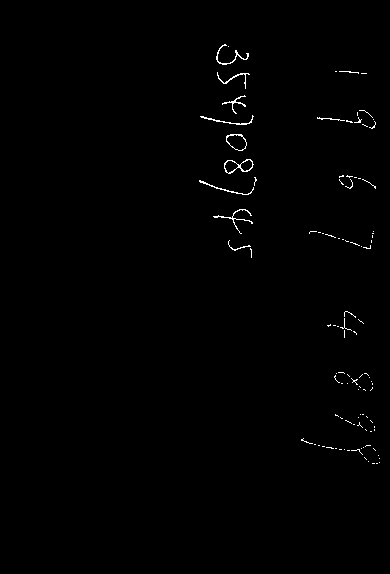 19674899
354708745